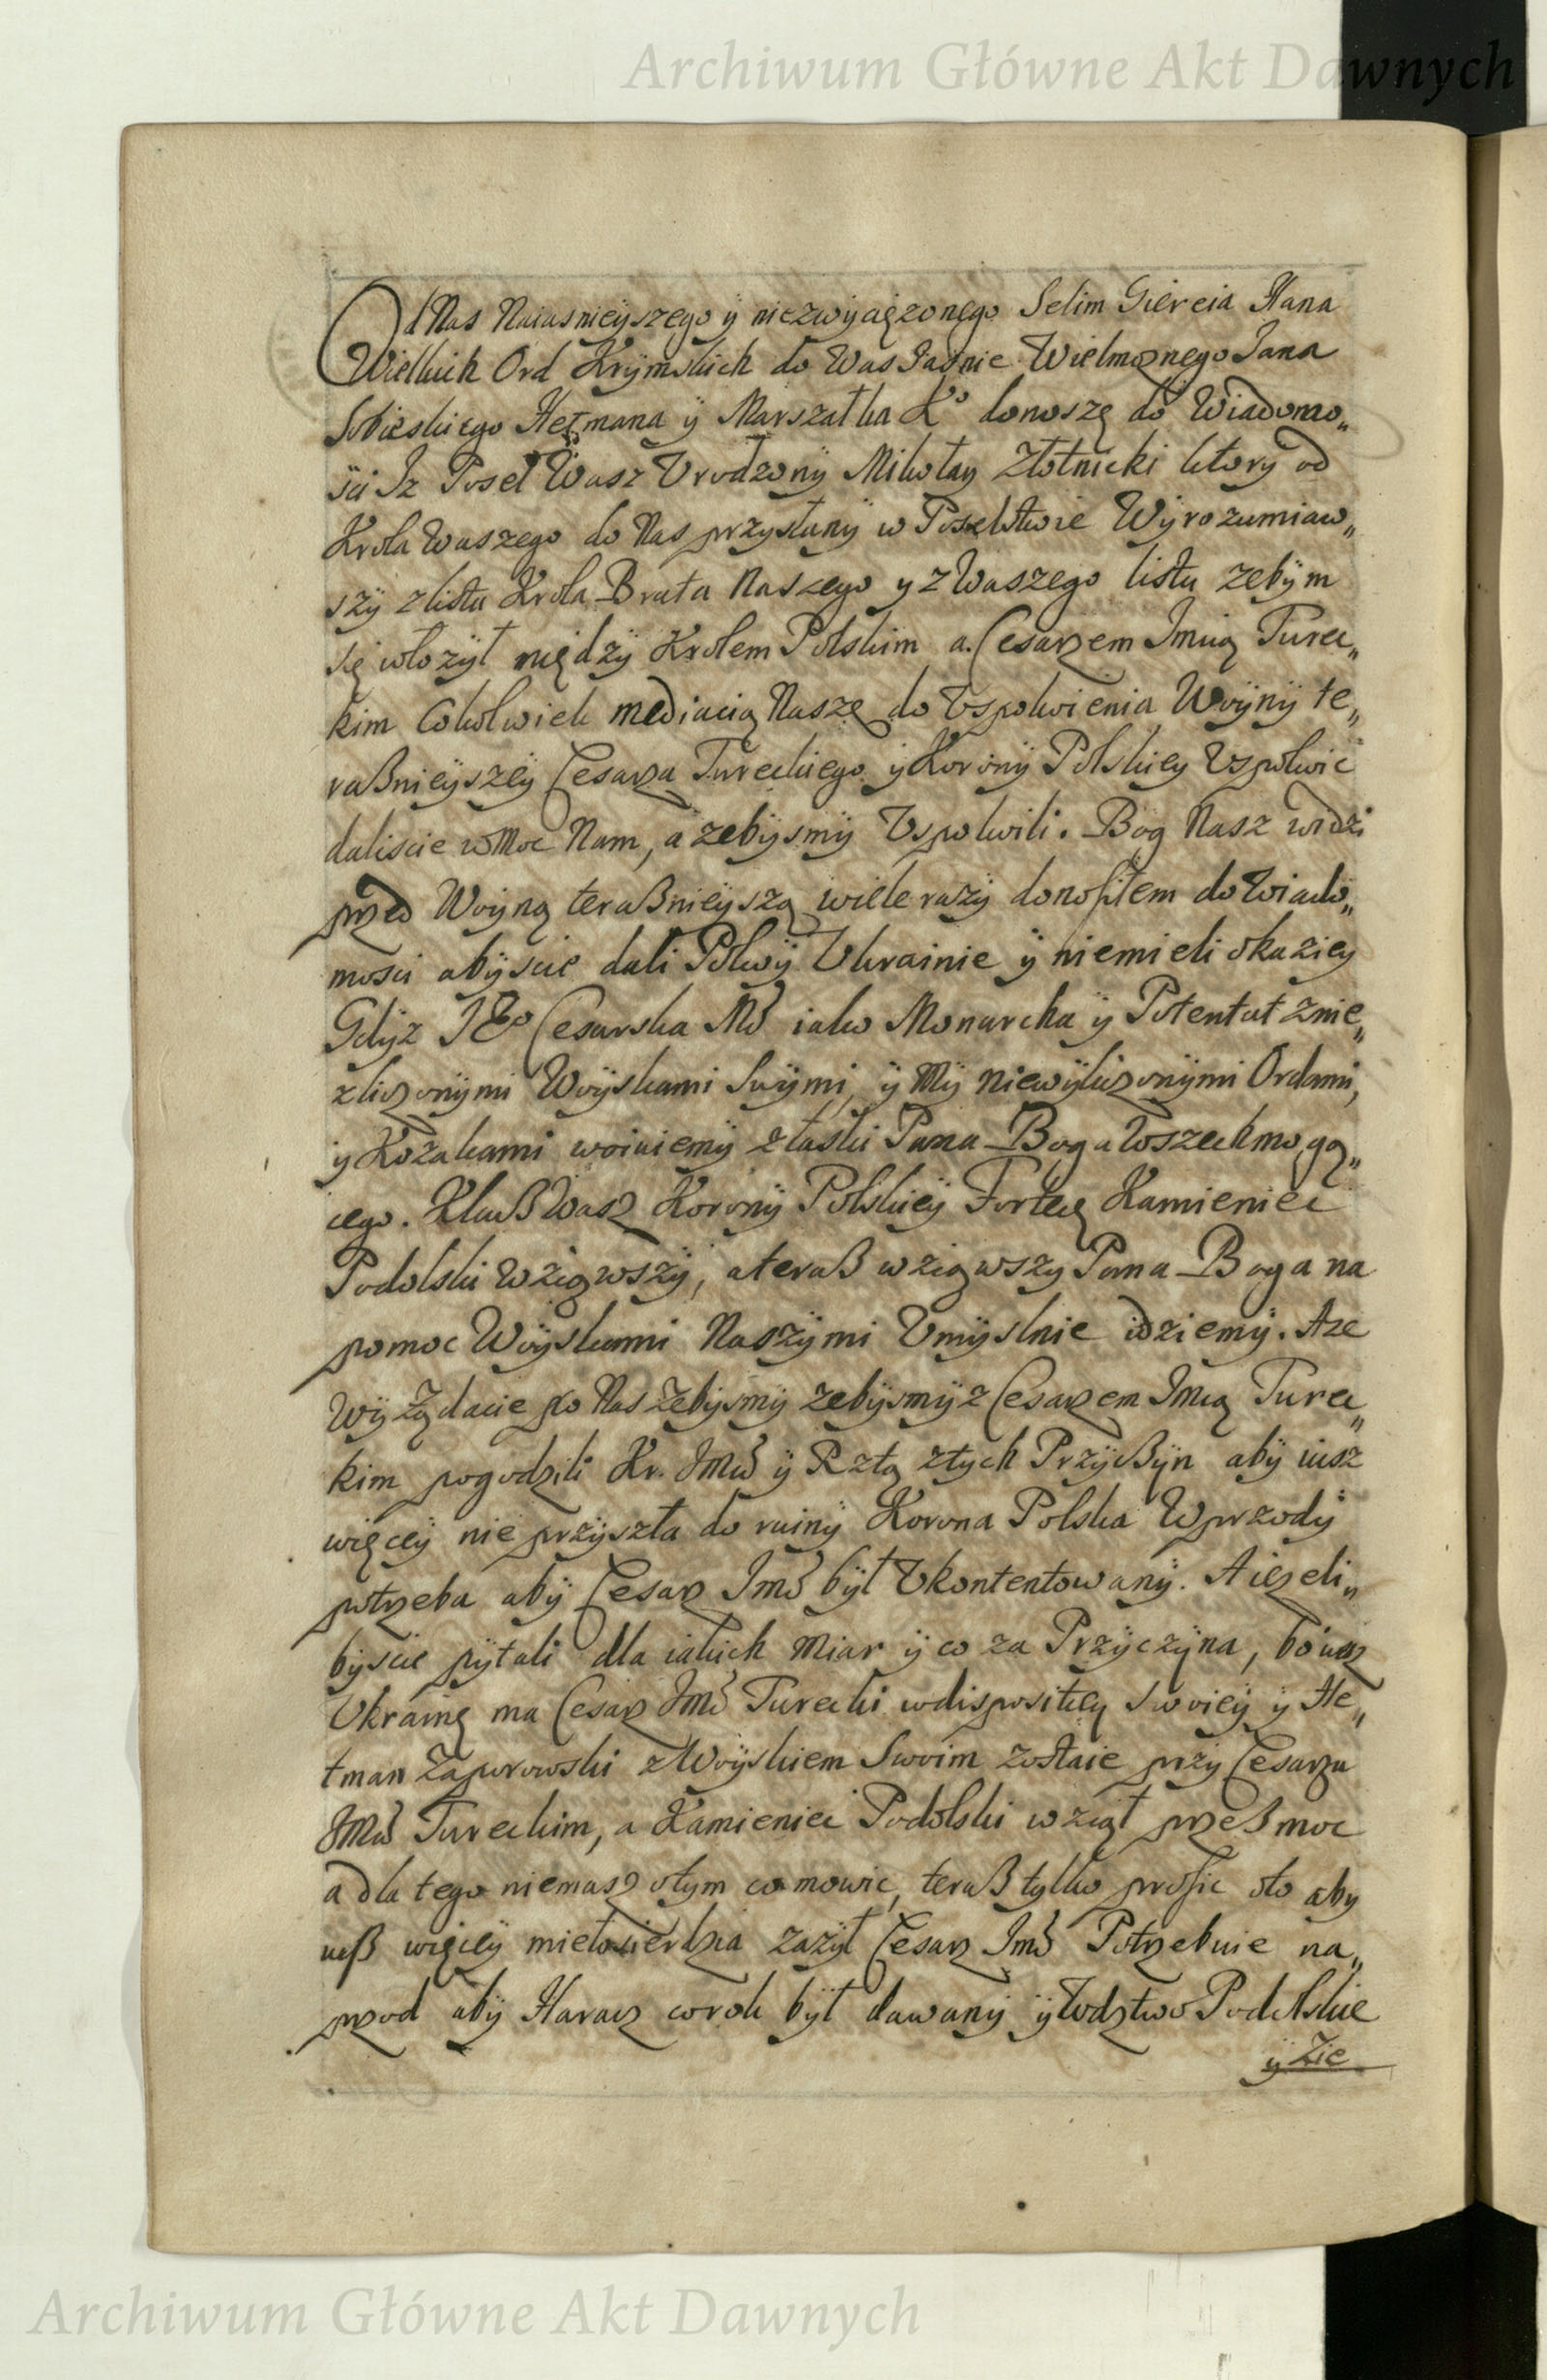 Archiwum Główne Akt Dawnych
Od Nas Naiasnieÿszego ÿ niezwÿcięzonego Selim Giereia Hana
Wielkich Ord Krÿmskich do Was Jasnie Wielmoznego Jana
Sobieskiego Hetmana ÿ Marszałka Ko donoszę do Wiadomo„
sci Iz Poseł Wasz Vrodzonÿ Mikołaÿ Złotnicki ktory od
Krola Waszego do Nas przysłanÿ w Poselstwie Wÿrozumiaw„
szÿ z listu Krola Brata Naszego y z Waszego listu zebÿm
się włozÿł międzÿ Krolem Polskim a Cesarzem Imią Turec„
kim Cokolwiek mediacią Naszę do Vspokoienia Woÿnÿ te„
raßnieÿszeÿ Cesarza Tureckiego ÿ Koronÿ Polskieÿ Vspokoic
daliscie w Moc Nam, a zebÿsmÿ Vspokoili. Bog Nasz widzi
przed Woÿną teraßnieÿszą wiele razÿ donosiłem do Wiado„
mosci abÿscie dali Pokoÿ Vkrainie ÿ niemieli okazieÿ
Gdÿz JEo Cesarska Mć iako Monarcha ÿ Potentat z nie„
zliczonÿmi Woÿskami Swÿmi, ÿ Mÿ niewÿliczonÿmi Ordami,
ÿ Kozakami woiuiemÿ z łaski Pana Boga Wszechmogą„
cego. Klucz Wasz Koronÿ Polskieÿ Fortecę Kamieniec
Podolski Wziąwszÿ, a teraß wziąwszy Pana Boga na
pomoc Woÿskami Naszÿmi Vmÿslnie idziemÿ. A ze
Wÿ ządacie po Nas zebÿsmÿ zebÿsmÿ z Cesarzem Imią Turec„
kim pogodzili Kr. JMć ÿ Rztą z tych Przÿczÿn abÿ iusz
więceÿ nie przÿszła do ruinÿ Korona Polska Wprzodÿ
potrzeba abÿ Cesarz Imć bÿł Vkontentowanÿ. A iezeli„
bÿscie pÿtali dla iakich Miar ÿ co za Przÿczÿna, bo iusz
Vkrainę ma Cesarz JMć Turecki w dispositieÿ swoieÿ ÿ He„
tman Zaporowski z Woÿskiem Swoim zostaie przÿ Cesarzu
JMć Tureckim, a Kamieniec Podolski wziął przeß moc
a dla tego niemasz o tym co mowic, teraß tylko prosic o to aby
iuß więceÿ miełosierdzia zazÿł Cesarz Imć Potrzebuie na„
przod abÿ Haracz co rok bÿł dawanÿ ÿ Wodztwo Podolskie
ÿ Zie
Archiwum Główne Akt Dawnych